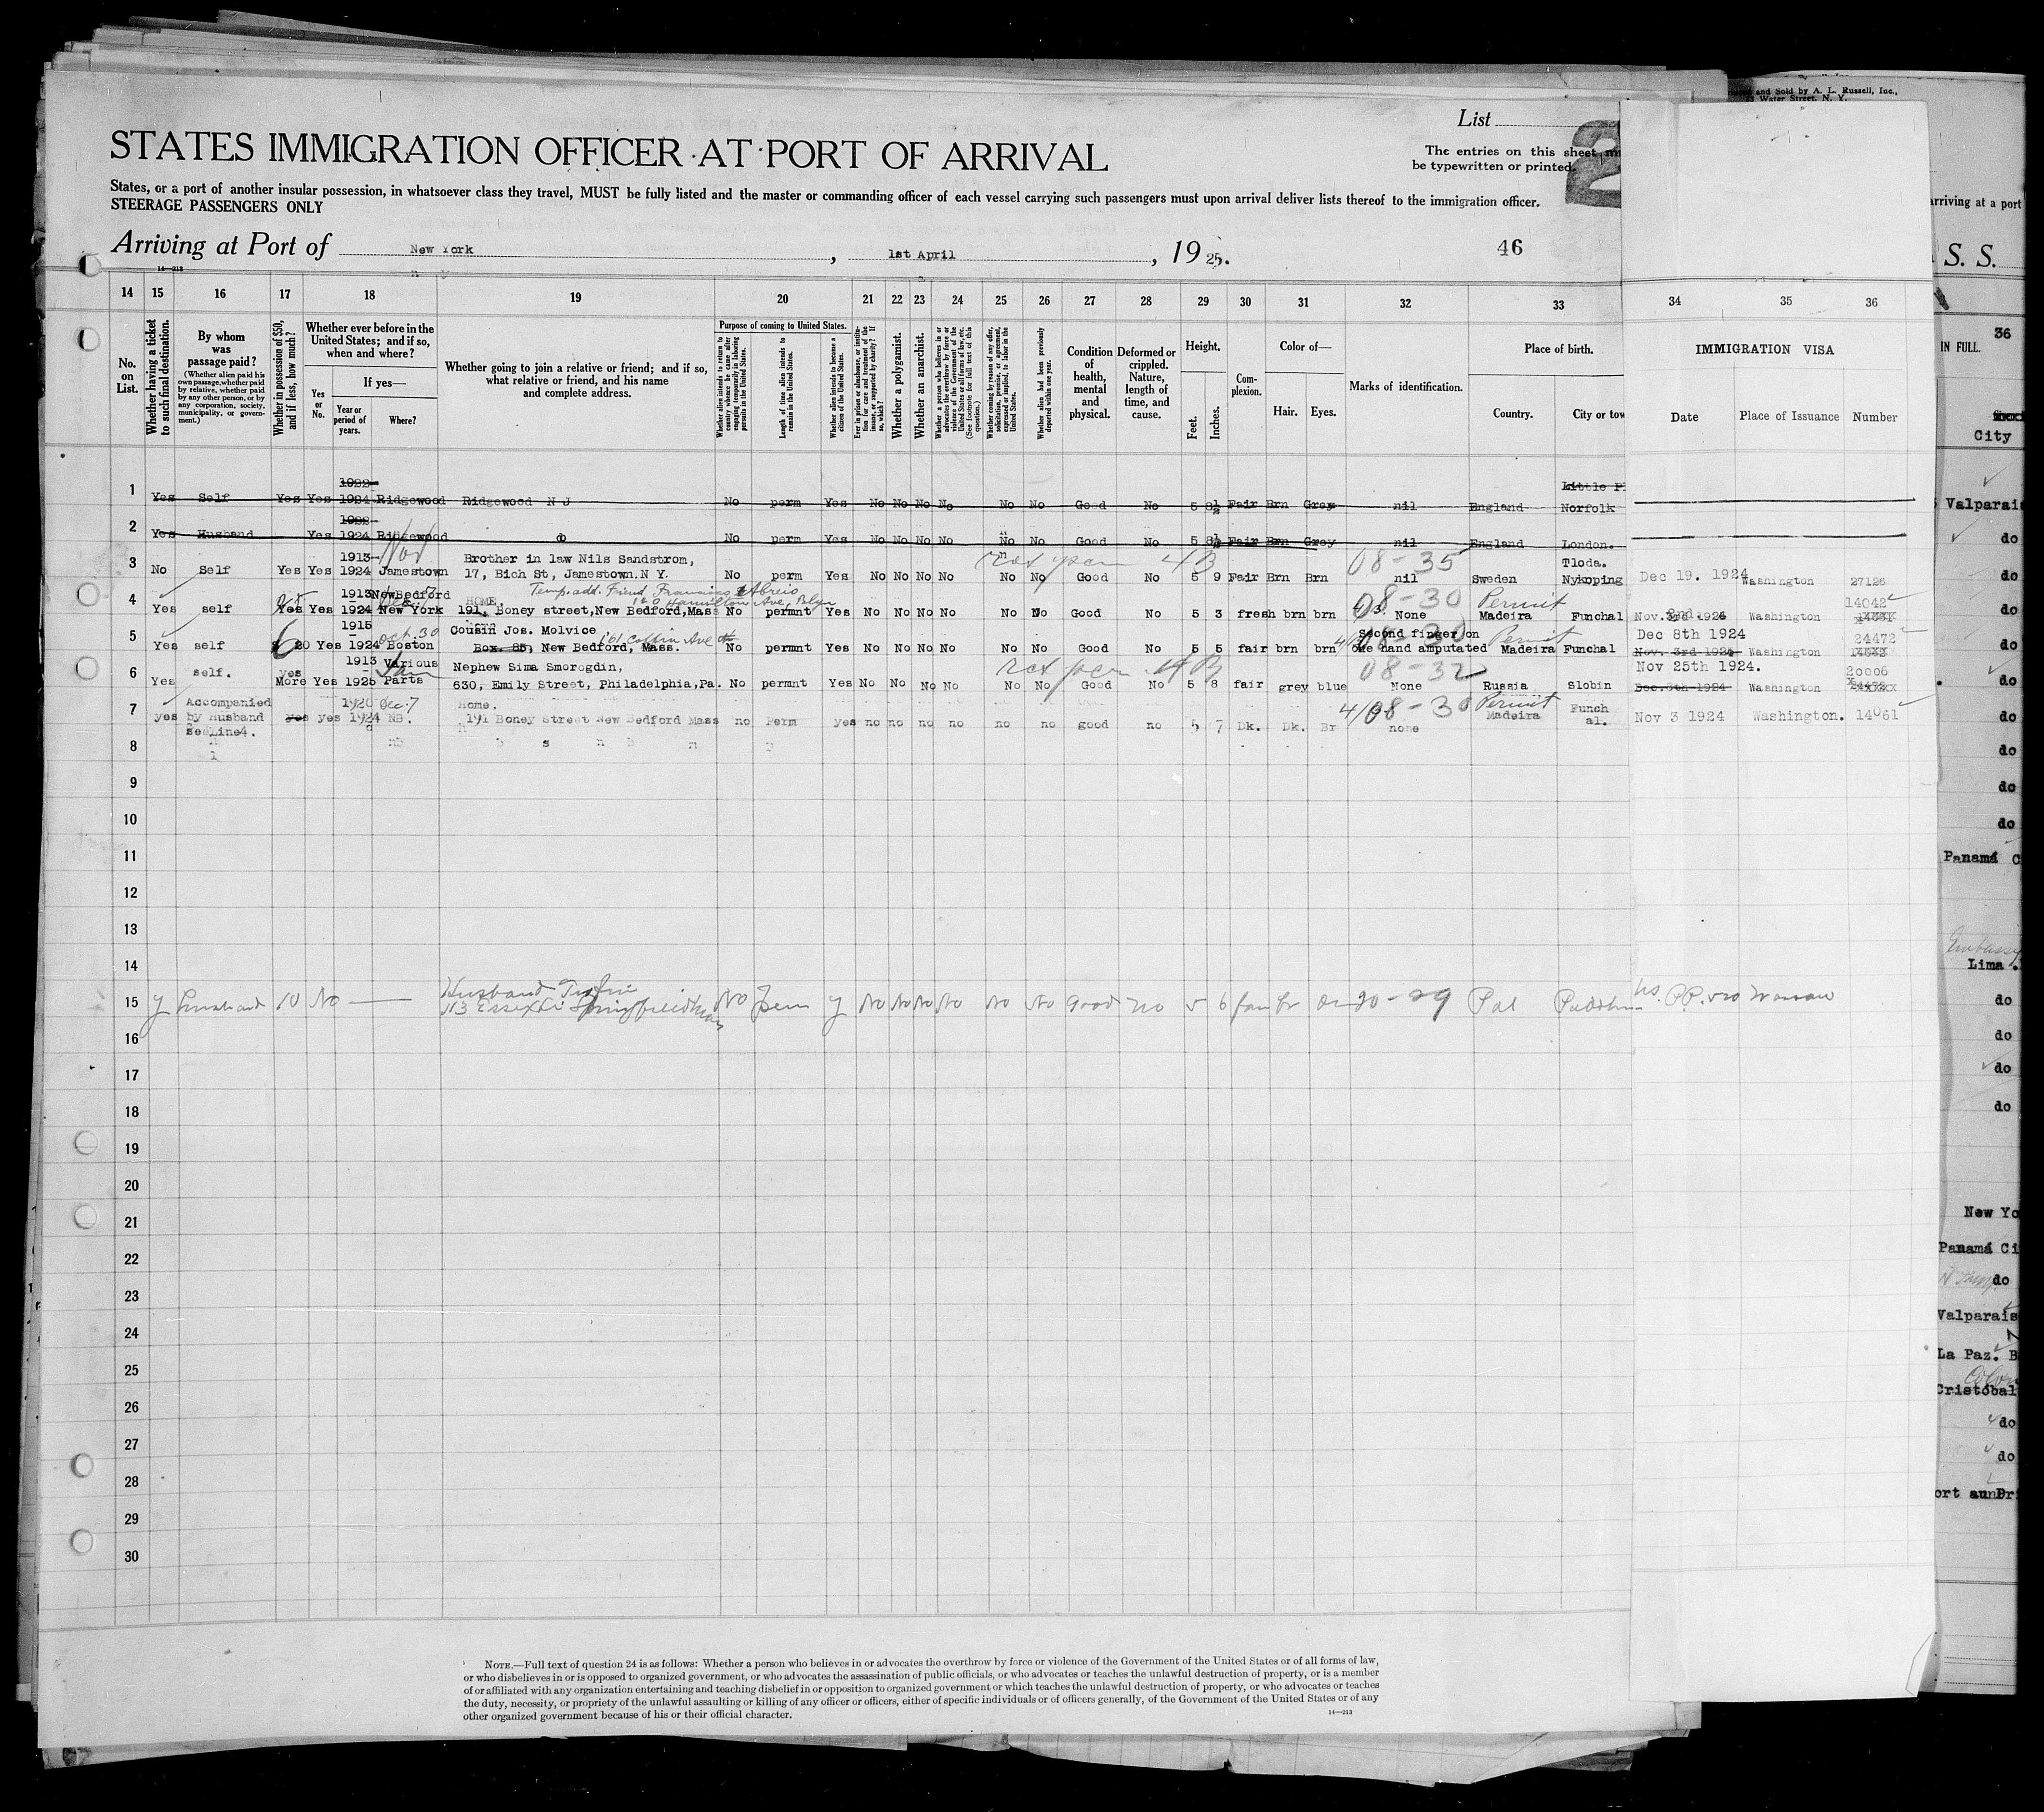 and Sold by A. L. Russell, Inc.,
Water Street, N. Y.
List
STATES IMMIGRATION OFFICER AT PORT OF ARRIVAL
The entries on this sheet
be typewritten or printed.
States, or a port of another insular possession, in whatsoever class they travel, MUST be fully listed and the master or commanding officer of each vessel carrying such passengers must upon arrival deliver lists thereof to the immigration officer.
STEERAGE PASSENGERS ONLY
arriving at a port
Arriving at Port of New York, 1st April, 1925.
46
S. S.
14—213
14 15 16 17 18 19 20 21 22 23 24 25 26 27 28 29 30 31 32 33 34 35 36
36
No. on List.
Whether having a ticket to such final destination.
By whom was passage paid?
(Whether alien paid his own passage, whether paid by relative, whether paid by any other person, or by any corporation, society, municipality, or government.)
Whether in possession of $50, and if less, how much?
Whether ever before in the United States; and if so, when and where?
Yes or No.
If yes—
Year or period of years.
Where?
Whether going to join a relative or friend; and if so, what relative or friend, and his name and complete address.
Purpose of coming to United States.
Whether alien intends to return to country whence he came after engaging temporarily in laboring pursuits in the United States.
Length of time alien intends to remain in the United States.
Whether alien intends to become a citizen of the United States.
Ever in prison or almshouse, or institution for care and treatment of the insane, or supported by charity? If so, which?
Whether a polygamist.
Whether an anarchist.
Whether a person who believes in or advocates the overthrow by force or violence of the Government of the United States or all forms of law, etc. (See footnote for full text of this question.)
Whether coming by reason of any offer, solicitation, promise, or agreement, expressed or implied, to labor in the United States.
Whether alien had been previously deported within one year.
Condition of health, mental and physical.
Deformed or crippled. Nature, length of time, and cause.
Height.
Feet.
Inches.
Complexion.
Color of—
Hair.
Eyes.
Marks of identification.
Place of birth.
Country.
City or tow
IMMIGRATION VISA
Date
Place of Issuance
Number
IN FULL.
City
1 Yes Self Yes Yes 1922- 1924 Ridgewood Ridgewood N J No perm Yes No No No No No No Good No 5 8½ Fair Brn Grey nil England Norfolk
2 Yes Husband Yes 1922- 1924 Ridgewood do No perm Yes No No No No No No Good No 5 8½ Fair Brn Grey nil England London.
3 No Self Yes Yes 1913- 1924 Nov Jamestown Brother in law Nils Sandstrom,
17, Bich St, Jamestown. N Y. No perm Yes No No No No No No Good No 5 9 Fair Brn Brn 08-35 nil Sweden Tloda. Nykoping Dec 19. 1924 Washington 27126
4 Yes self Yes Yes 1913 - 1924 New Bedford New York HOME Temp. add. Friend, Francisco Abreio
191, Boney street, New Bedford, Mass No permnt Yes No No No No No No Good No 5 3 fresh brn brn 08-30 None Permit Madeira Funchal Nov. 3rd 1924 Washington 14042
5 Yes self 20 Yes 1915 - 1924 Oct. 30 Boston Cousin Jos. Molvice
Box. 85, 161 Coffin Ave New Bedford, Mass. No permnt Yes No No No No No No Good No 5 5 fair brn brn 08-30 Second finger on one hand amputated Permit Madeira Funchal Dec 8th 1924 Nov. 3rd 1924 Washington 24472
6 Yes self. yes More Yes 1913 1925 Various Parts Nephew Sima Smorogdin,
630, Emily Street, Philadelphia, Pa. No permnt Yes No No No No No No Good No 5 8 fair grey blue 08-32 None Russia Slobin Nov 25th 1924. Dec. 8th 1924 Washington 20006
7 yes Accompanied by husband see Line4. yes yes 1920 1924 Dec. 7 NB. Home.
191 Boney Street New Bedford Mass no Perm yes no no no no no no good no 5 7 Dk. Dk. Br 08-30 none Permit Madeira Funchal. Nov 3 1924 Washington. 14061
8
9
10
11
12
13
14
15 Y husband 10 No — Husband
113 Essex St Springfield Mass No Perm Y No No No No No No Good no 5 6 fair br 20-29 Pol
16
17
18
19
20
21
22
23
24
25
26
27
28
29
30
Valparais
do
do
do
do
do
do
do
do
Panamá C
Lima.
do
do
do
do
New Yo
Panamá Ci
do
Valparais
La Paz. B
Cristobal
do
do
NOTE.—Full text of question 24 is as follows: Whether a person who believes in or advocates the overthrow by force or violence of the Government of the United States or of all forms of law,
or who disbelieves in or is opposed to organized government, or who advocates the assassination of public officials, or who advocates or teaches the unlawful destruction of property, or is a member
of or affiliated with any organization entertaining and teaching disbelief in or opposition to organized government or which teaches the unlawful destruction of property, or who advocates or teaches
the duty, necessity, or propriety of the unlawful assaulting or killing of any officer or officers, either of specific individuals or of officers generally, of the Government of the United States or of any
other organized government because of his or their official character.
14—213